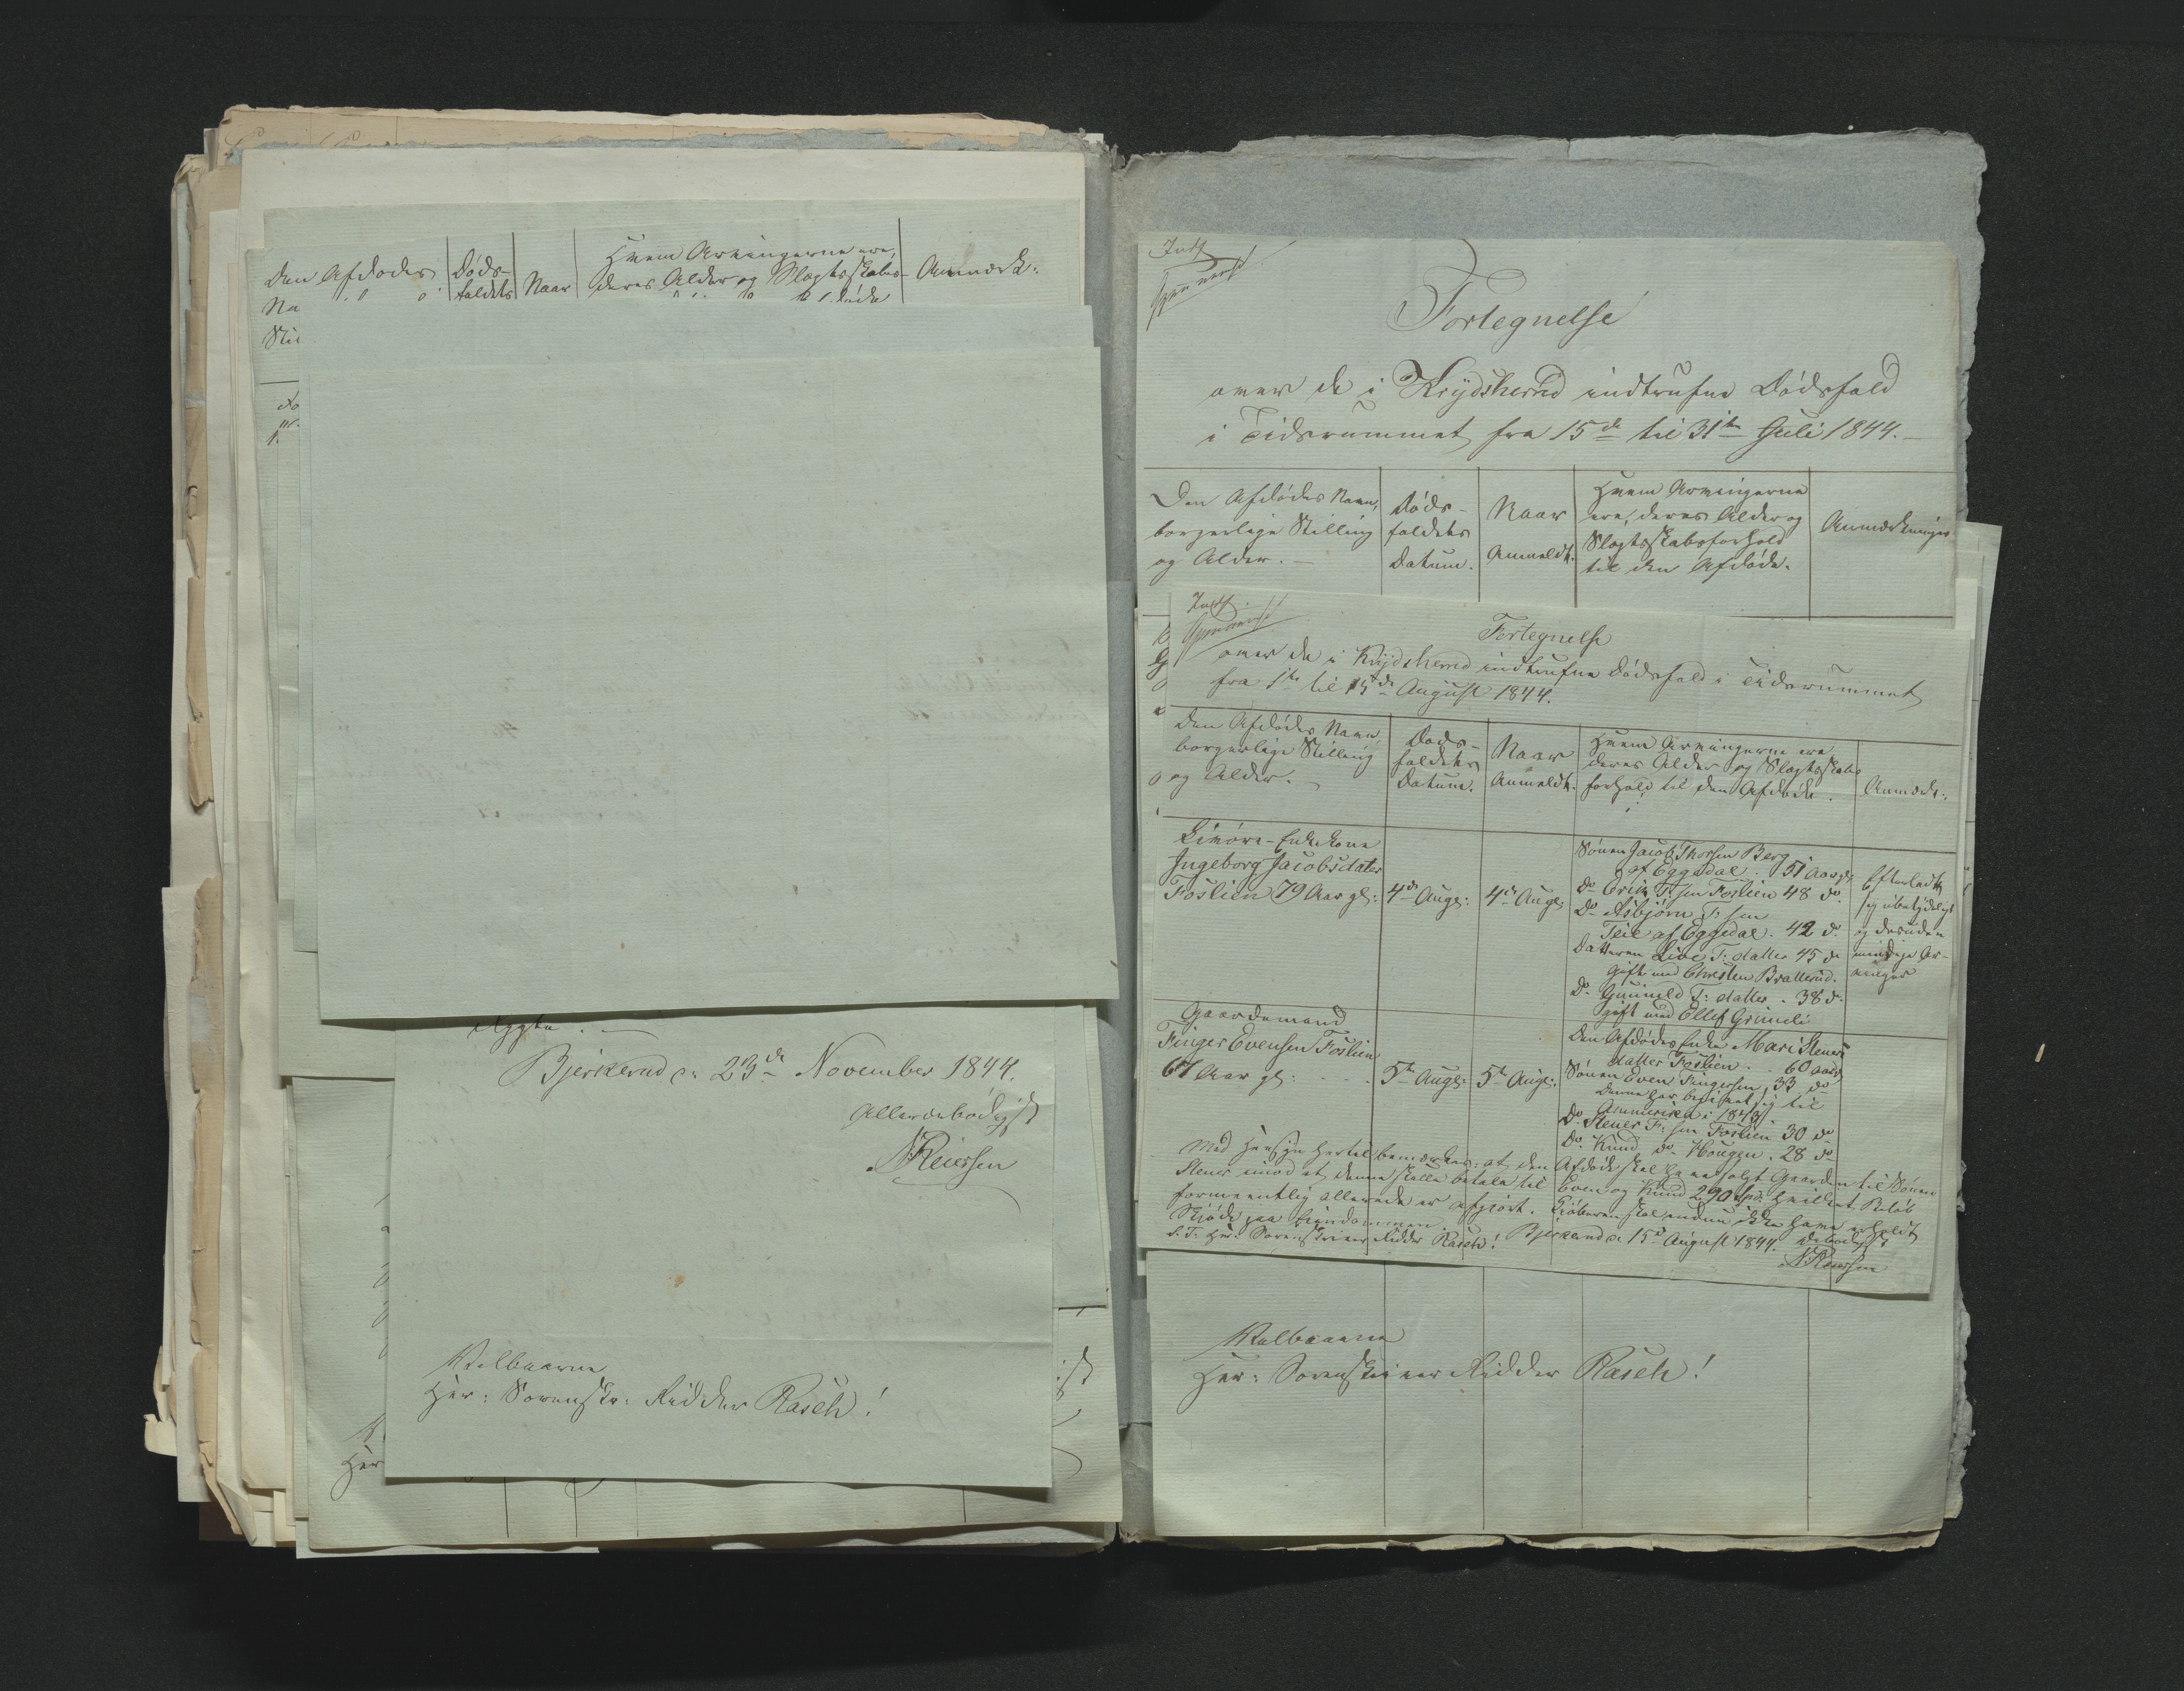 Den Afdødes
Døds-
faldets
Naar
Hvem Arvingerne ere,
deres Alder og Slægtskabs-
Anmærk:
Na
Sti
Bjerkerud d: 23de November 1844.
Allerærbødigst
NReiersen
Velbaarne
Herr: Sorenskr: Ridder Rasch!
Her
Indf
Fortegnelse
over de i Krydsherred indtrufne Dødsfald
i Tidsrummet fra 15de til 31te Juli 1844.
Den Afdødes Navn,
borgerlige Stilling
og Alder.
Døds-
faldets
Datum.
Naar
Anmeldt.
Hvem Arvingerne
ere, deres Alder og
Slægtskabsforhold
til den Afdøde.
Anmærkninger
Indf.
Fortegnelse
over de i Krydsherred indtrufne Dødsfald i Tidsrummet
fra 1te til 15de August 1844.
Den Afdødes Navn,
borgerlige Stilling
og Alder.
Døds-
faldets
Datum.
Naar
Anmeldt.
Hvem Arvingerne ere
deres Alder og Slægtskabs
forhold til den Afdøde.
Anmærk:
Enkekone
Ingeborg Jacobsdatter
Foslien 79 Aar gl:
4de Aug:
4de Aug:
Sønen Jacob Thorsen Berg
af Eggedal. 51 Aar gl:
Do Erik T: sen Foslien 48 do
Do Asbjørn T: sen
Teie af Eggedal. 42 do
Datteren Live T: datter 45 do
gift med Christen Bratterud.
Do Gunnild T: datter. 38 do
gift med Ellef Grimeli
Efterladte
sig ubetydeligt
og desuden
myndige Ar-
vinger
Gaardemand
Finger Evensen Foslien
67 Aar gl:
5te Aug:
5te Aug:
Den Afdødes Enke Mari Steners
datter Foslien 60 Aar
Sønen Even Fingersen 33 do
Denne har begivet sig til
Amerika i 1843
Do Stener F: sen Foslien 30 do
Do Knud do Hougen. 28 do
Med Hensyn hertil bemærkes: at den Afdøde skal have solgt Gaarden til Sønen
Stener imod at denne skulle betale til Even og Knud 290 Spd. hvilket Beløb
formeentlig allerede er afgjort. Kjøberen skal endnu ikke have erholdt
Skjøde paa Eiendommen.
S. T. Hr: Sorenskriver Ridder Rasch! Bjerkerud d: 15de August 1844. ærbødigst
NReiersen
Velbaarne
Herr: Sorenskriver Ridder Rasch!